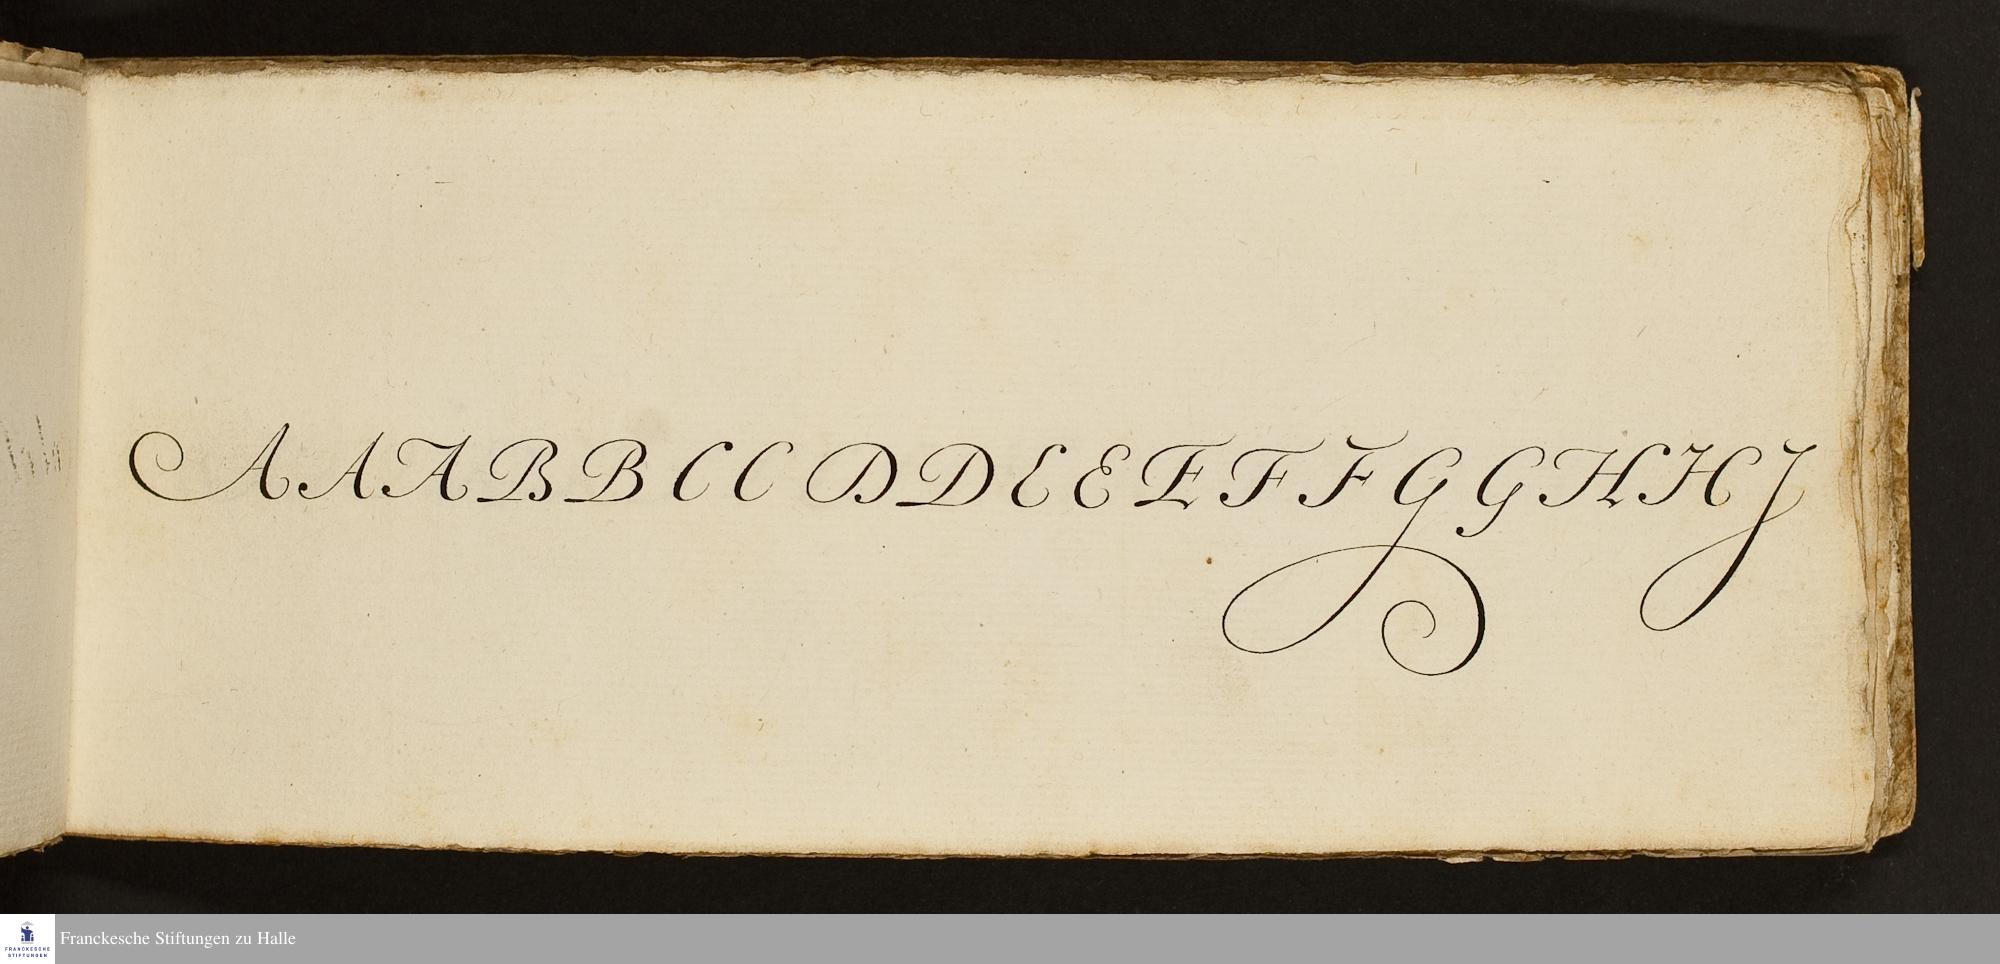 A A A B B C C D D E E E F F G G H H J
Franckesche Stiftungen zu Halle
FRANCKESCHE
STIFTUNGEN